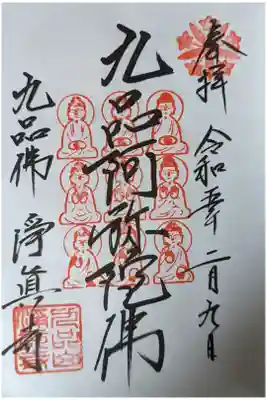 奉拝
令和五年二月九日
九品阿弥陀佛
九品佛
淨真寺